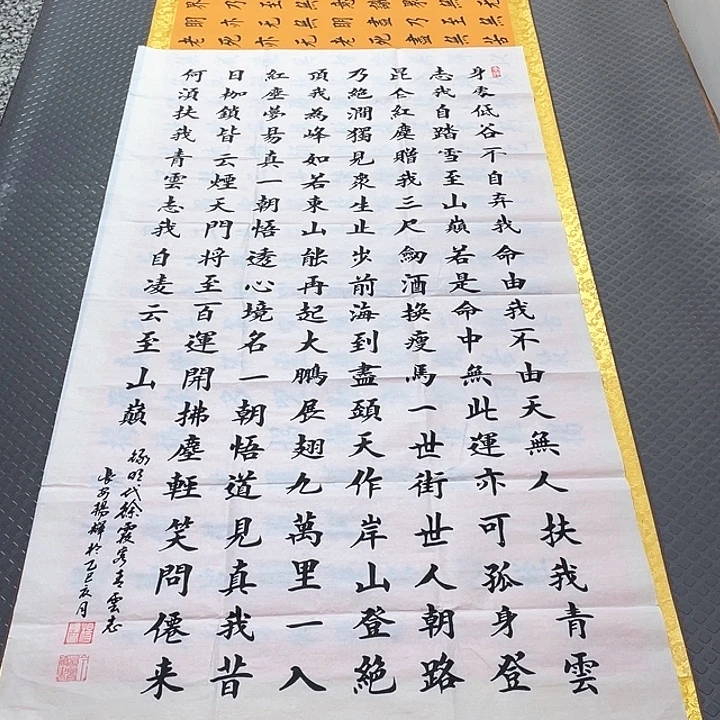 身處低谷不自弃我命由我不由天無人扶我青雲
志我自踏雪至山巔若是命中無此運亦可孤身登
昆仑紅塵贈我三尺劒酒換瘦馬一世街世人朝路
乃絕澗獨見衆生止步前海到盡頭天作岸山登絕
頂我為峰如若東山能再起大鵬展翅九萬里一入
紅塵夢易真一朝悟透心境名一朝悟道見真我昔
日枷鎖皆云煙天門將至百運開拂塵輕笑問僊來
何須扶我青雲志我自凌云至山巔
録明代徐霞客青雲志
長安楊輝於乙巳亥月